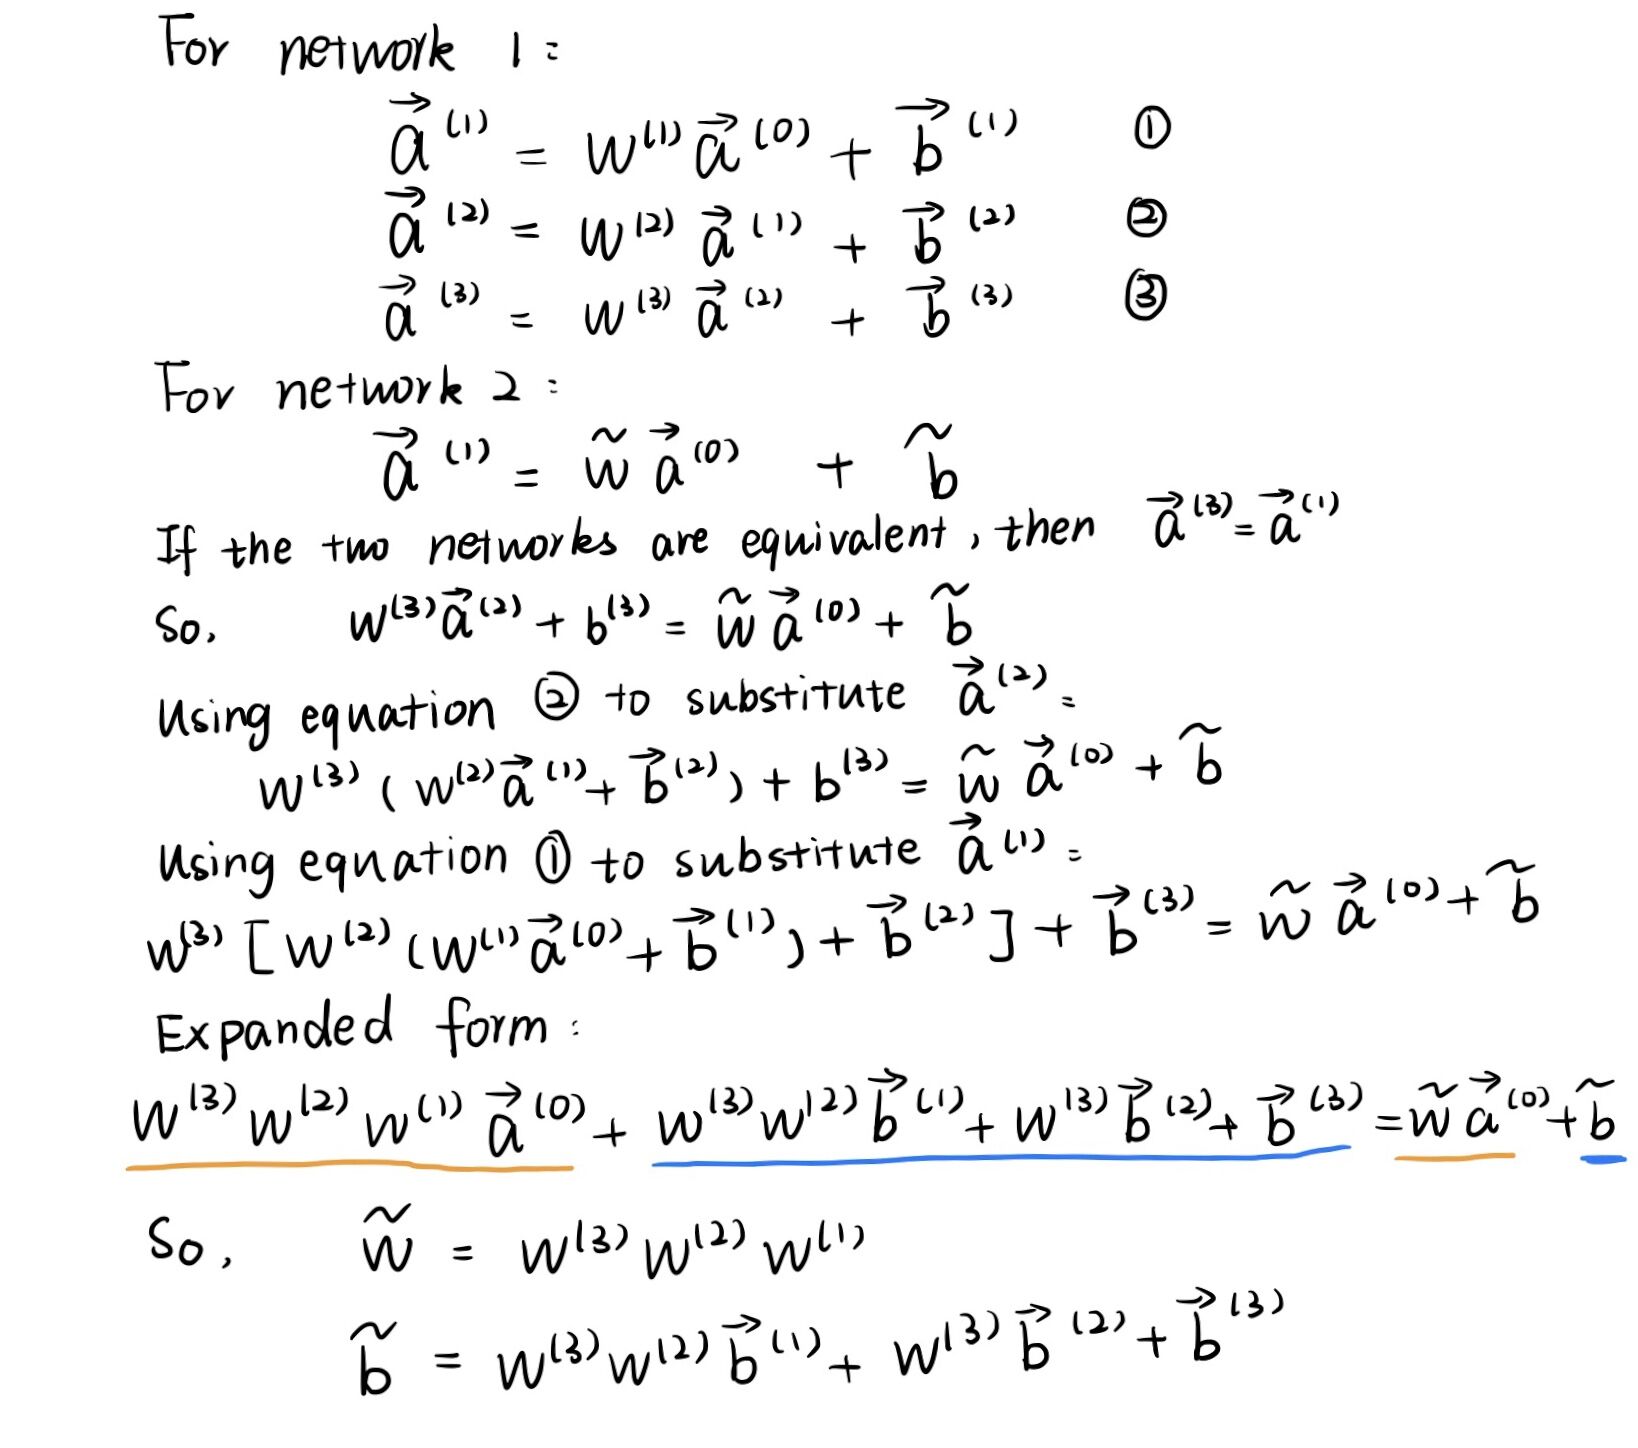 For network 1:
a⃗⁽¹⁾ = W⁽¹⁾ a⃗⁽⁰⁾ + b⃗⁽¹⁾ ①
a⃗⁽²⁾ = W⁽²⁾ a⃗⁽¹⁾ + b⃗⁽²⁾ ②
a⃗⁽³⁾ = W⁽³⁾ a⃗⁽²⁾ + b⃗⁽³⁾ ③
For network 2:
a⃗⁽¹⁾ = W̃ a⃗⁽⁰⁾ + b̃
If the two networks are equivalent, then a⃗⁽³⁾ = a⃗⁽¹⁾
So, W⁽³⁾ a⃗⁽²⁾ + b⁽³⁾ = W̃ a⃗⁽⁰⁾ + b̃
Using equation ② to substitute a⃗⁽²⁾:
W⁽³⁾ (W⁽²⁾ a⃗⁽¹⁾ + b⃗⁽²⁾) + b⁽³⁾ = W̃ a⃗⁽⁰⁾ + b̃
Using equation ① to substitute a⃗⁽¹⁾:
W⁽³⁾ [W⁽²⁾ (W⁽¹⁾ a⃗⁽⁰⁾ + b⃗⁽¹⁾) + b⃗⁽²⁾] + b⃗⁽³⁾ = W̃ a⃗⁽⁰⁾ + b̃
Expanded form:
W⁽³⁾ W⁽²⁾ W⁽¹⁾ a⃗⁽⁰⁾ + W⁽³⁾ W⁽²⁾ b⃗⁽¹⁾ + W⁽³⁾ b⃗⁽²⁾ + b⃗⁽³⁾ = W̃ a⃗⁽⁰⁾ + b̃
So, W̃ = W⁽³⁾ W⁽²⁾ W⁽¹⁾
b̃ = W⁽³⁾ W⁽²⁾ b⃗⁽¹⁾ + W⁽³⁾ b⃗⁽²⁾ + b⃗⁽³⁾